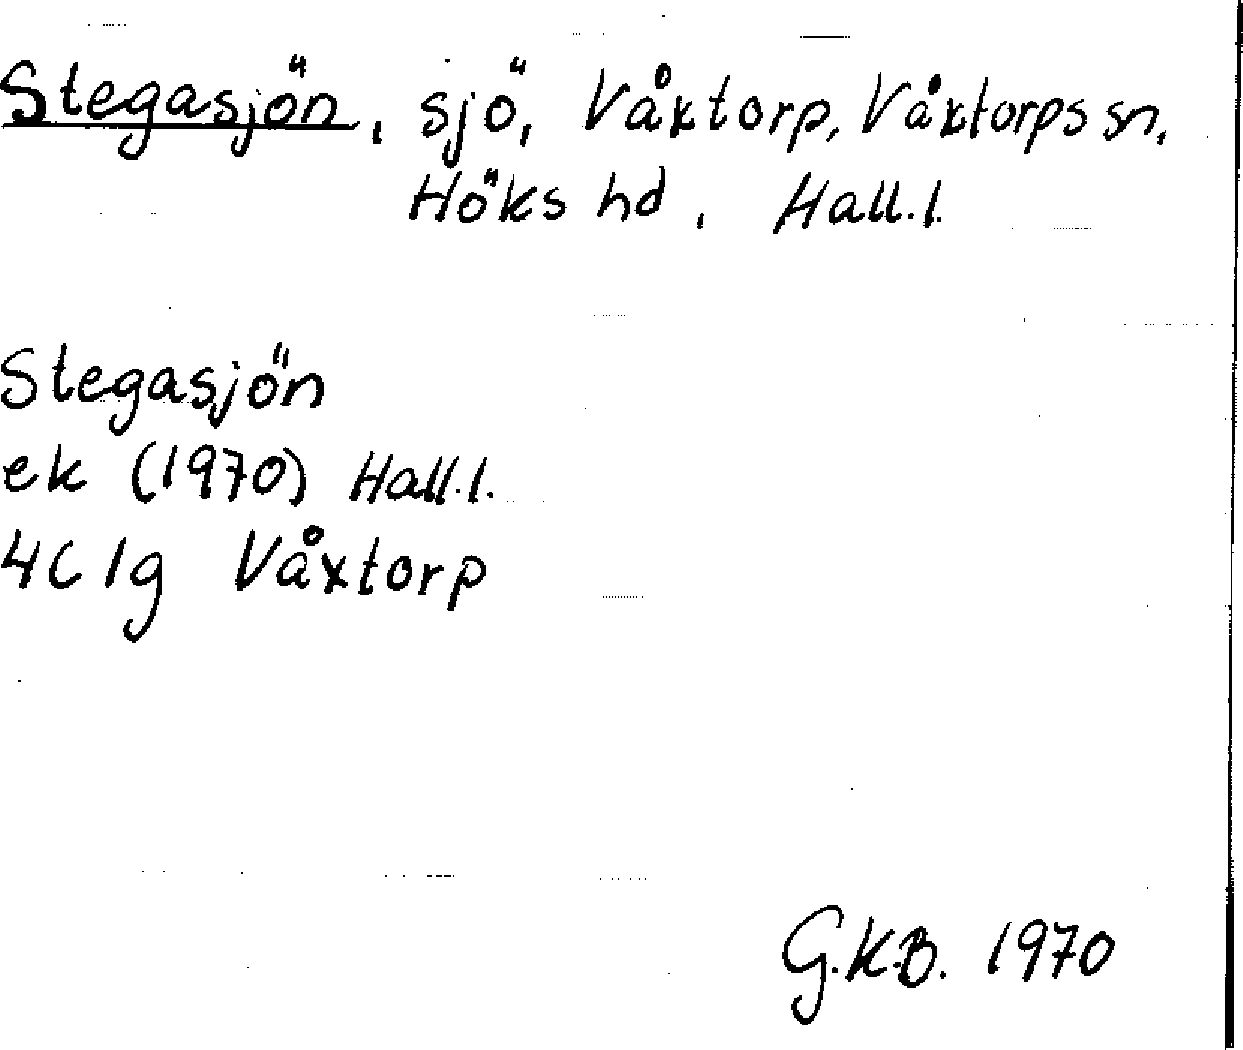 Stegasjön, sjö, Våxtorp, Våxtorps sn,
Höks hd, Hall.l.
Stegasjön
ek (1970) Hall.l.
4C 1g Våxtorp
G.K.B. 1970